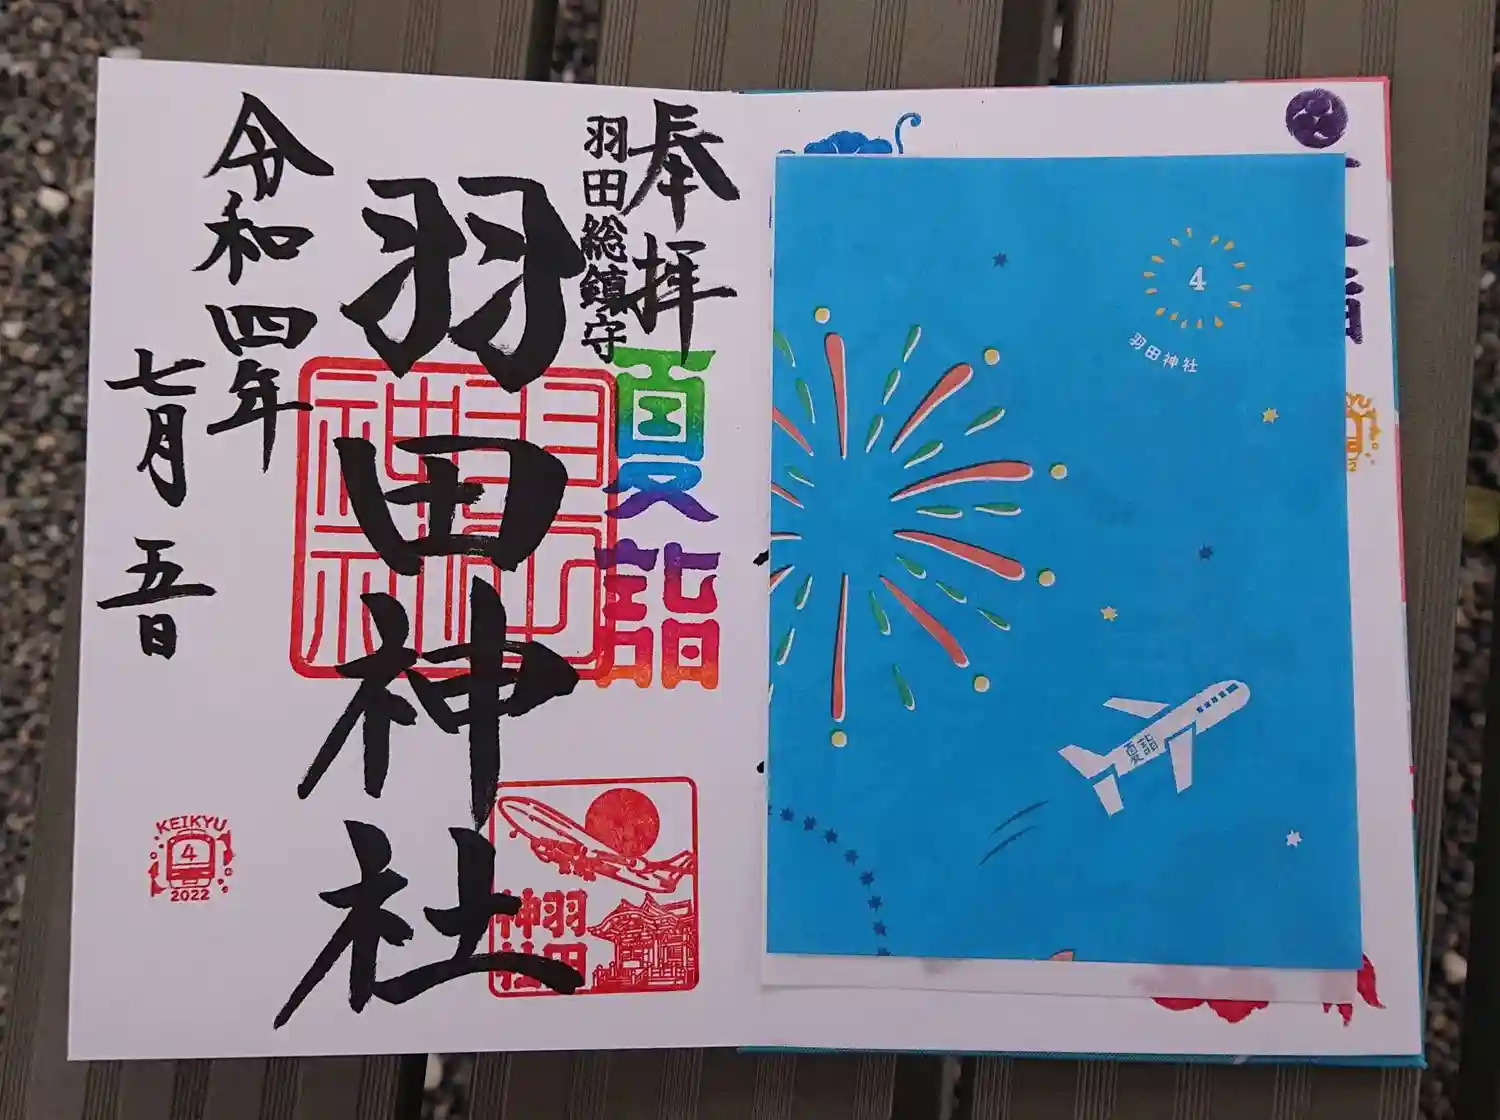 奉拝
羽田総鎮守
夏詣
羽田神社
令和四年
七月五日
羽田神社
羽田
神社
KEIKYU
4
2022
4
羽田神社
夏詣